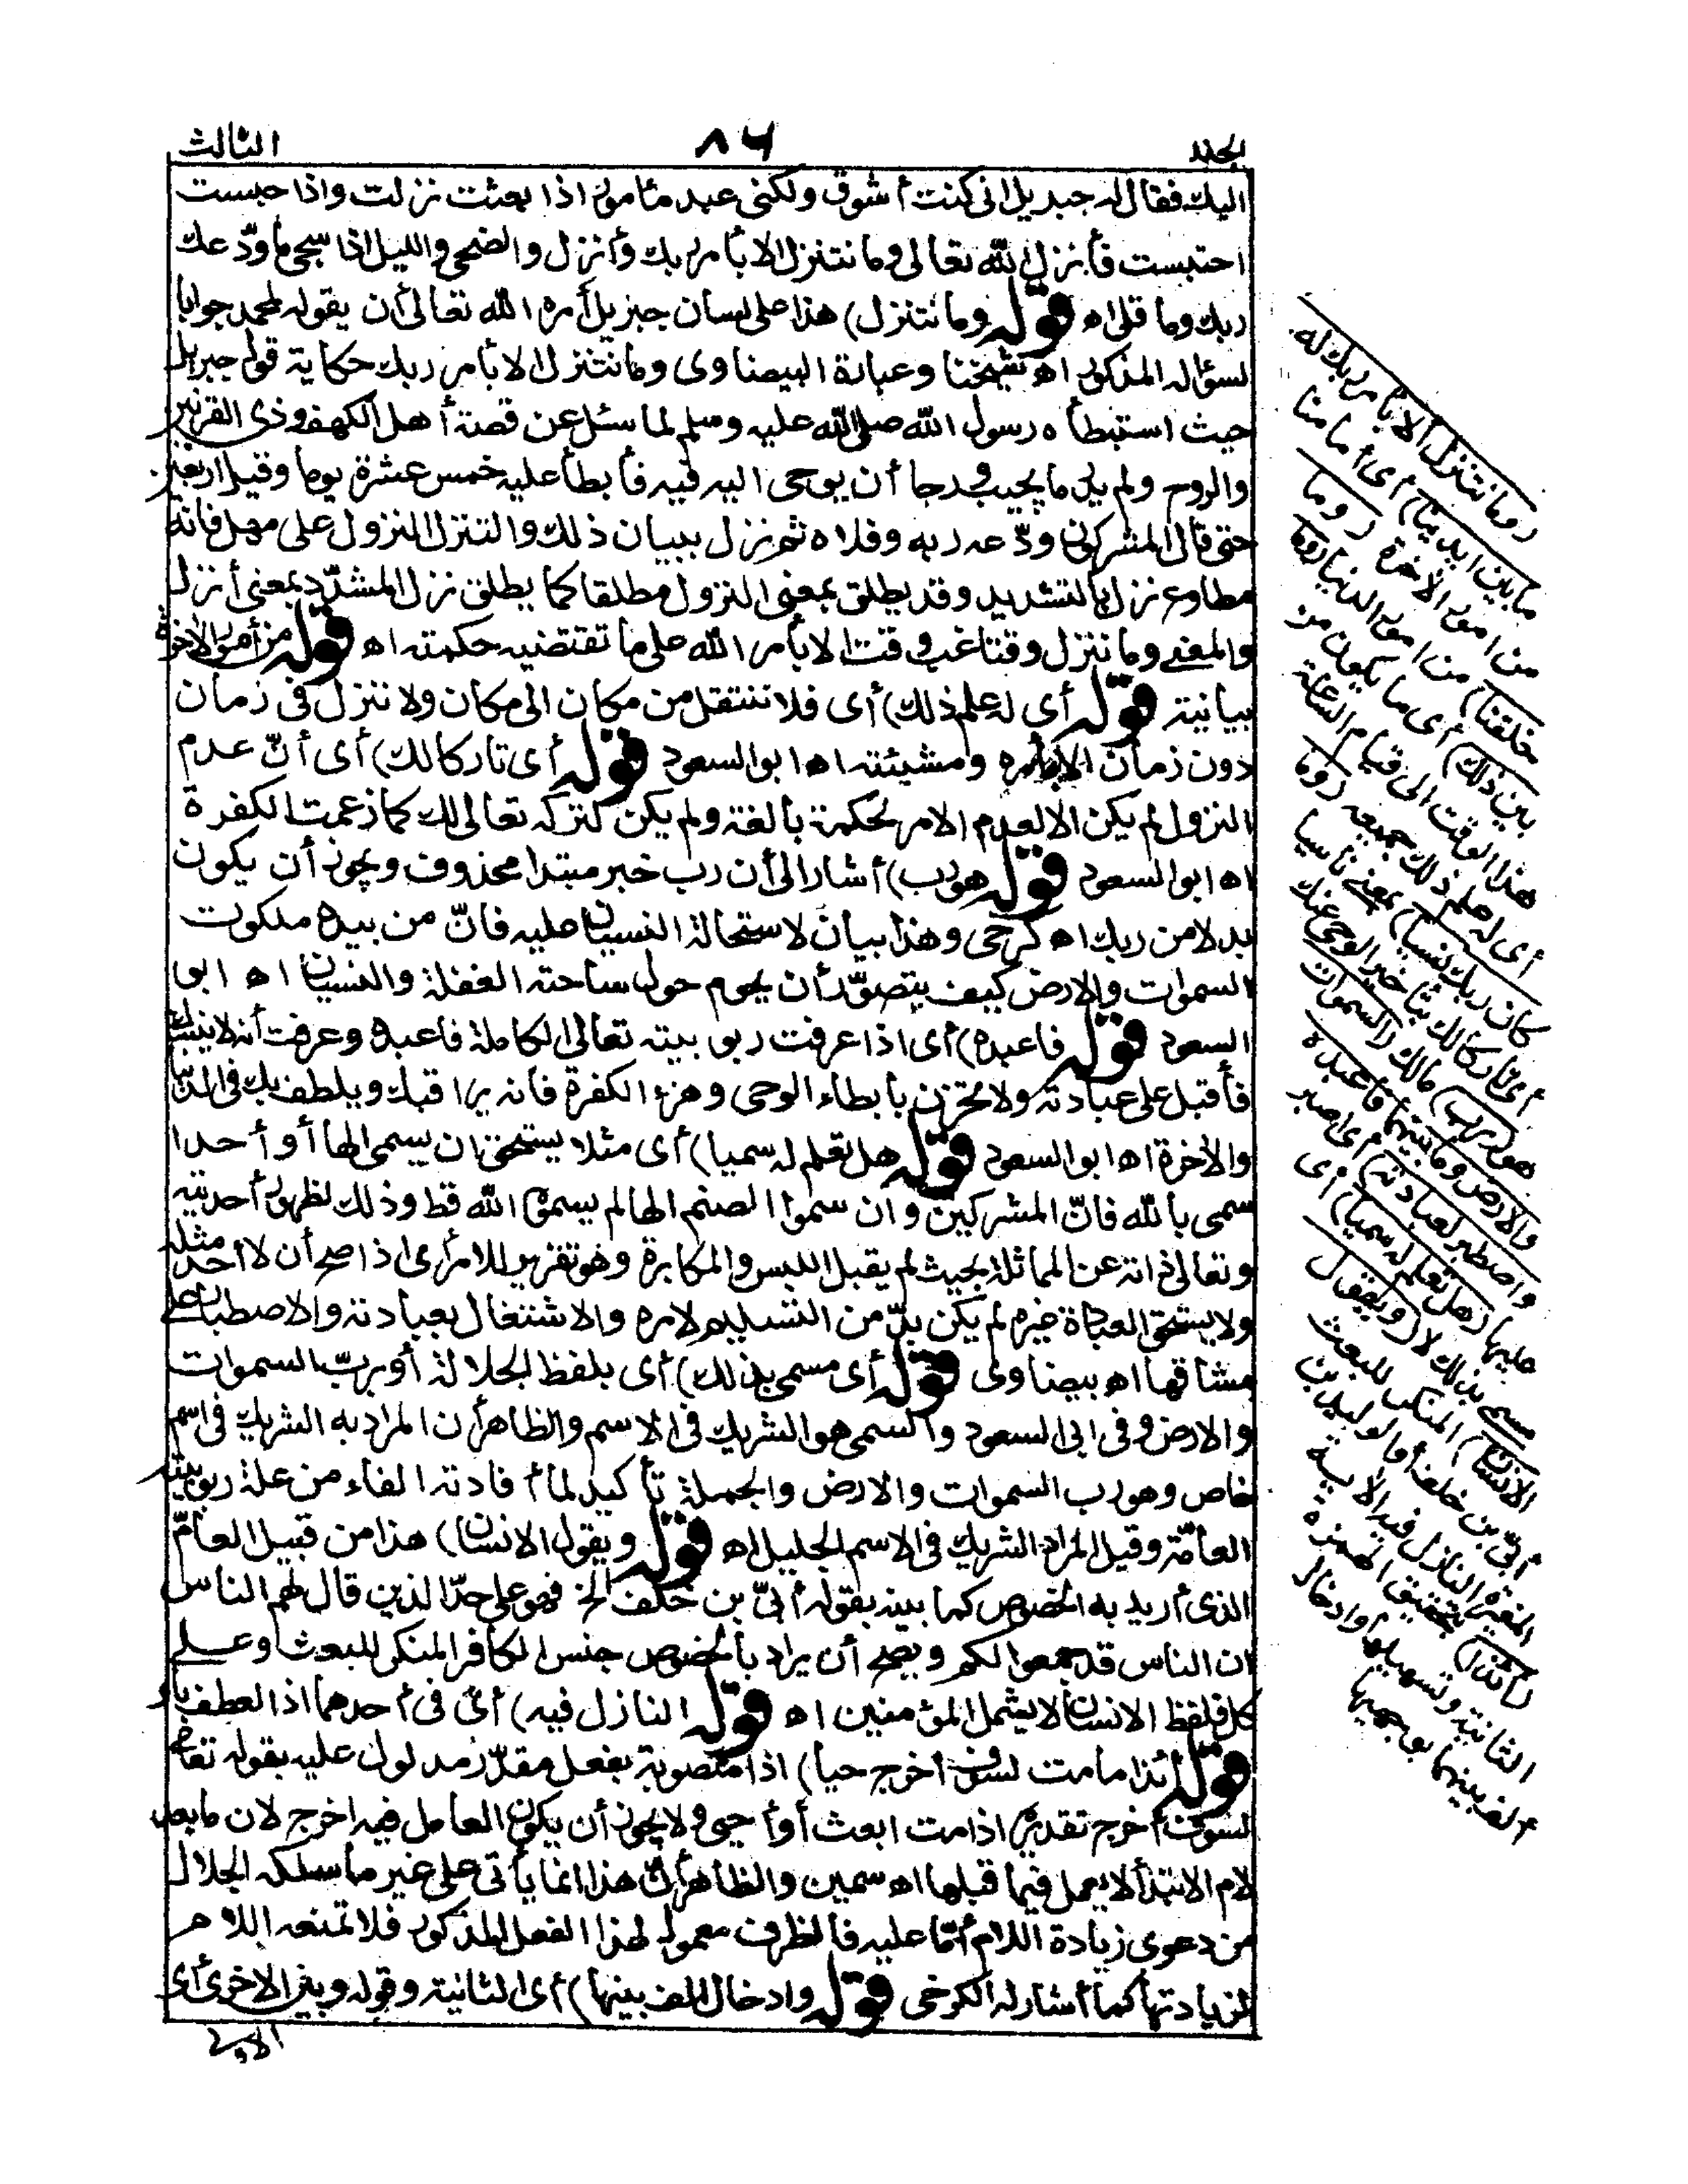 الجلد
٨٦
الثالث
اليك فقال له جبريل انى كنت أشوق ولكنى عبد مأمور اذا بعثت نزلت واذا حبست
احتبست فأنزل الله تعالى وما نتنزل الا بأمر ربك وأنزل والضحى والليل اذا سجى ما ودّعك
ربك وما قلى اه قوله وما نتنزل) هذا على لسان جبريل أمره الله تعالى أن يقوله لمحمد جوابا
لسؤاله المذكور اه شيخنا وعبارة البيضاوى وما نتنزل الا بأمر ربك حكاية قول جبريل
حيث استبطأه رسول الله صلى الله عليه وسلم لما سئل عن قصة أهل الكهف وذى القرنين
والروح ولم يدر ما يجيب فرجا أن يوحى اليه فيه فأبطأ عليه خمس عشرة يوما وقيل اربعين
حتى قال المشركون ودّعه ربه وقلاه ثم نزل ببيان ذلك والتنزل النزول على مهل فانه
مطاوع نزل بالتشديد وقد يطلق بمعنى النزول مطلقا كما يطلق نزل المشدّد بمعنى أنزل
والمعنى وما ننزل وقتا غب وقت الا بأمر الله على ما تقتضيه حكمته اه قوله من أمور الآخرة
بيانية قوله أى له علم ذلك) أى فلا ننتقل من مكان الى مكان ولا ننزل فى زمان
دون زمان الا بأمره ومشيئته اه ابو السعود قوله أى تاركا لك) أى أنّ عدم
النزول لم يكن الا لعدم الامر لحكمة بالغة ولم يكن لتركه تعالى لك كما زعمت الكفرة
اه ابو السعود قوله هو رب) أشار الى أن رب خبر مبتدا محذوف ويجوز أن يكون
بدلا من ربك اه كرخى وهذا بيان لاستحالة النسيان عليه فانّ من بيده ملكوت
السموات والارض كيف يتصوّر أن يحوم حول ساحته الغفلة والنسيان اه ابو
السعود قوله فاعبده) أى اذا عرفت ربوبيته تعالى الكاملة فاعبده وعرفت أنه لا ينساك
فأقبل على عبادته ولا تحزن بابطاء الوحى وهزء الكفرة فانه يراقبك ويلطف بك فى الدنيا
والآخرة اه ابو السعود قوله هل تعلم له سميا) أى مثلا يستحق ان يسمى الها أو أحدا
سمى بالله فانّ المشركين وان سموا الصنم الها لم يسموه الله قط وذلك لظهور أحديته
وتعالى ذاته عن المماثلة بحيث لم يقبل اللبس والمكابرة وهو تقرير للامر أى اذا صح أن لا أحد مثله
ولا يستحق العبادة غيره لم يكن بدّ من التسليم لامره والاشتغال بعبادته والاصطبار على
مشاقها اه بيضاوى قوله أى مسمى بذلك) أى بلفظ الجلالة أو برب السموات
والارض وفى ابى السعود والسمى هو الشريك فى الاسم والظاهر أن المراد به الشريك فى اسم
خاص وهو رب السموات والارض والجملة تأكيد لما أفادته الفاء من علة ربوبيته
العامّة وقيل المراد الشريك فى الاسم الجليل اه قوله ويقول الانسان) هذا من قبيل العامّ
الذى أريد به الخصوص كما بينه بقوله أبىّ بن خلف الخ فهو على حدّ الذين قال لهم الناس
ان الناس قد جمعوا لكم ويصح أن يراد بالخصوص جنس الكافر المنكر للبعث وعلى
كل فلفظ الانسان لا يشمل المؤمنين اه قوله النازل فيه) أى فى أحدهما اذ العطف بأو
قوله أئذا ما مت لسوف أخرج حيا) اذا منصوبة بفعل مقدّر مدلول عليه بقوله تعالى
لسوف أخرج تقديره اذا مت ابعث أو أحيى ولا يجوز أن يكون العامل فيه اخرج لان ما بعد
لام الابتدا لا يعمل فيما قبلها اه سمين والظاهر أنّ هذا انما يأتى على غير ما سلكه الجلال
من دعوى زيادة اللام أمّا عليه فالظرف معمول لهذا الفعل المذكور فلا تمنعه اللام
لزيادتها كما أشار له الكرخى قوله وادخال الف بينها) أى الثانية وقوله وبين الاخرى أى
الاولى
(وما نتنزل الا بأمر ربك له
ما بين أيدينا) أى أمامنا
من امور الآخرة (وما
خلفنا) من امور الدنيا (وما
بين ذلك) أى ما يكون من
هذا الوقت الى قيام الساعة
أى له علم ذلك جميعه (وما
كان ربك نسيا) بمعنى ناسيا
أى تاركا لك بتأخير الوحى عنك
هو (رب) مالك (السموات
والارض وما بينهما فاعبده
واصطبر لعبادته) أى اصبر
عليها (هل تعلم له سميا) أى
مسمى بذلك لا (ويقول
الانسان) المنكر للبعث
أبىّ بن خلف أو الوليد بن
المغيرة النازل فيه الآية
(ائذا) بتحقيق الهمزة
الثانية وتسهيلها وادخال
الف بينهما بوجهيها